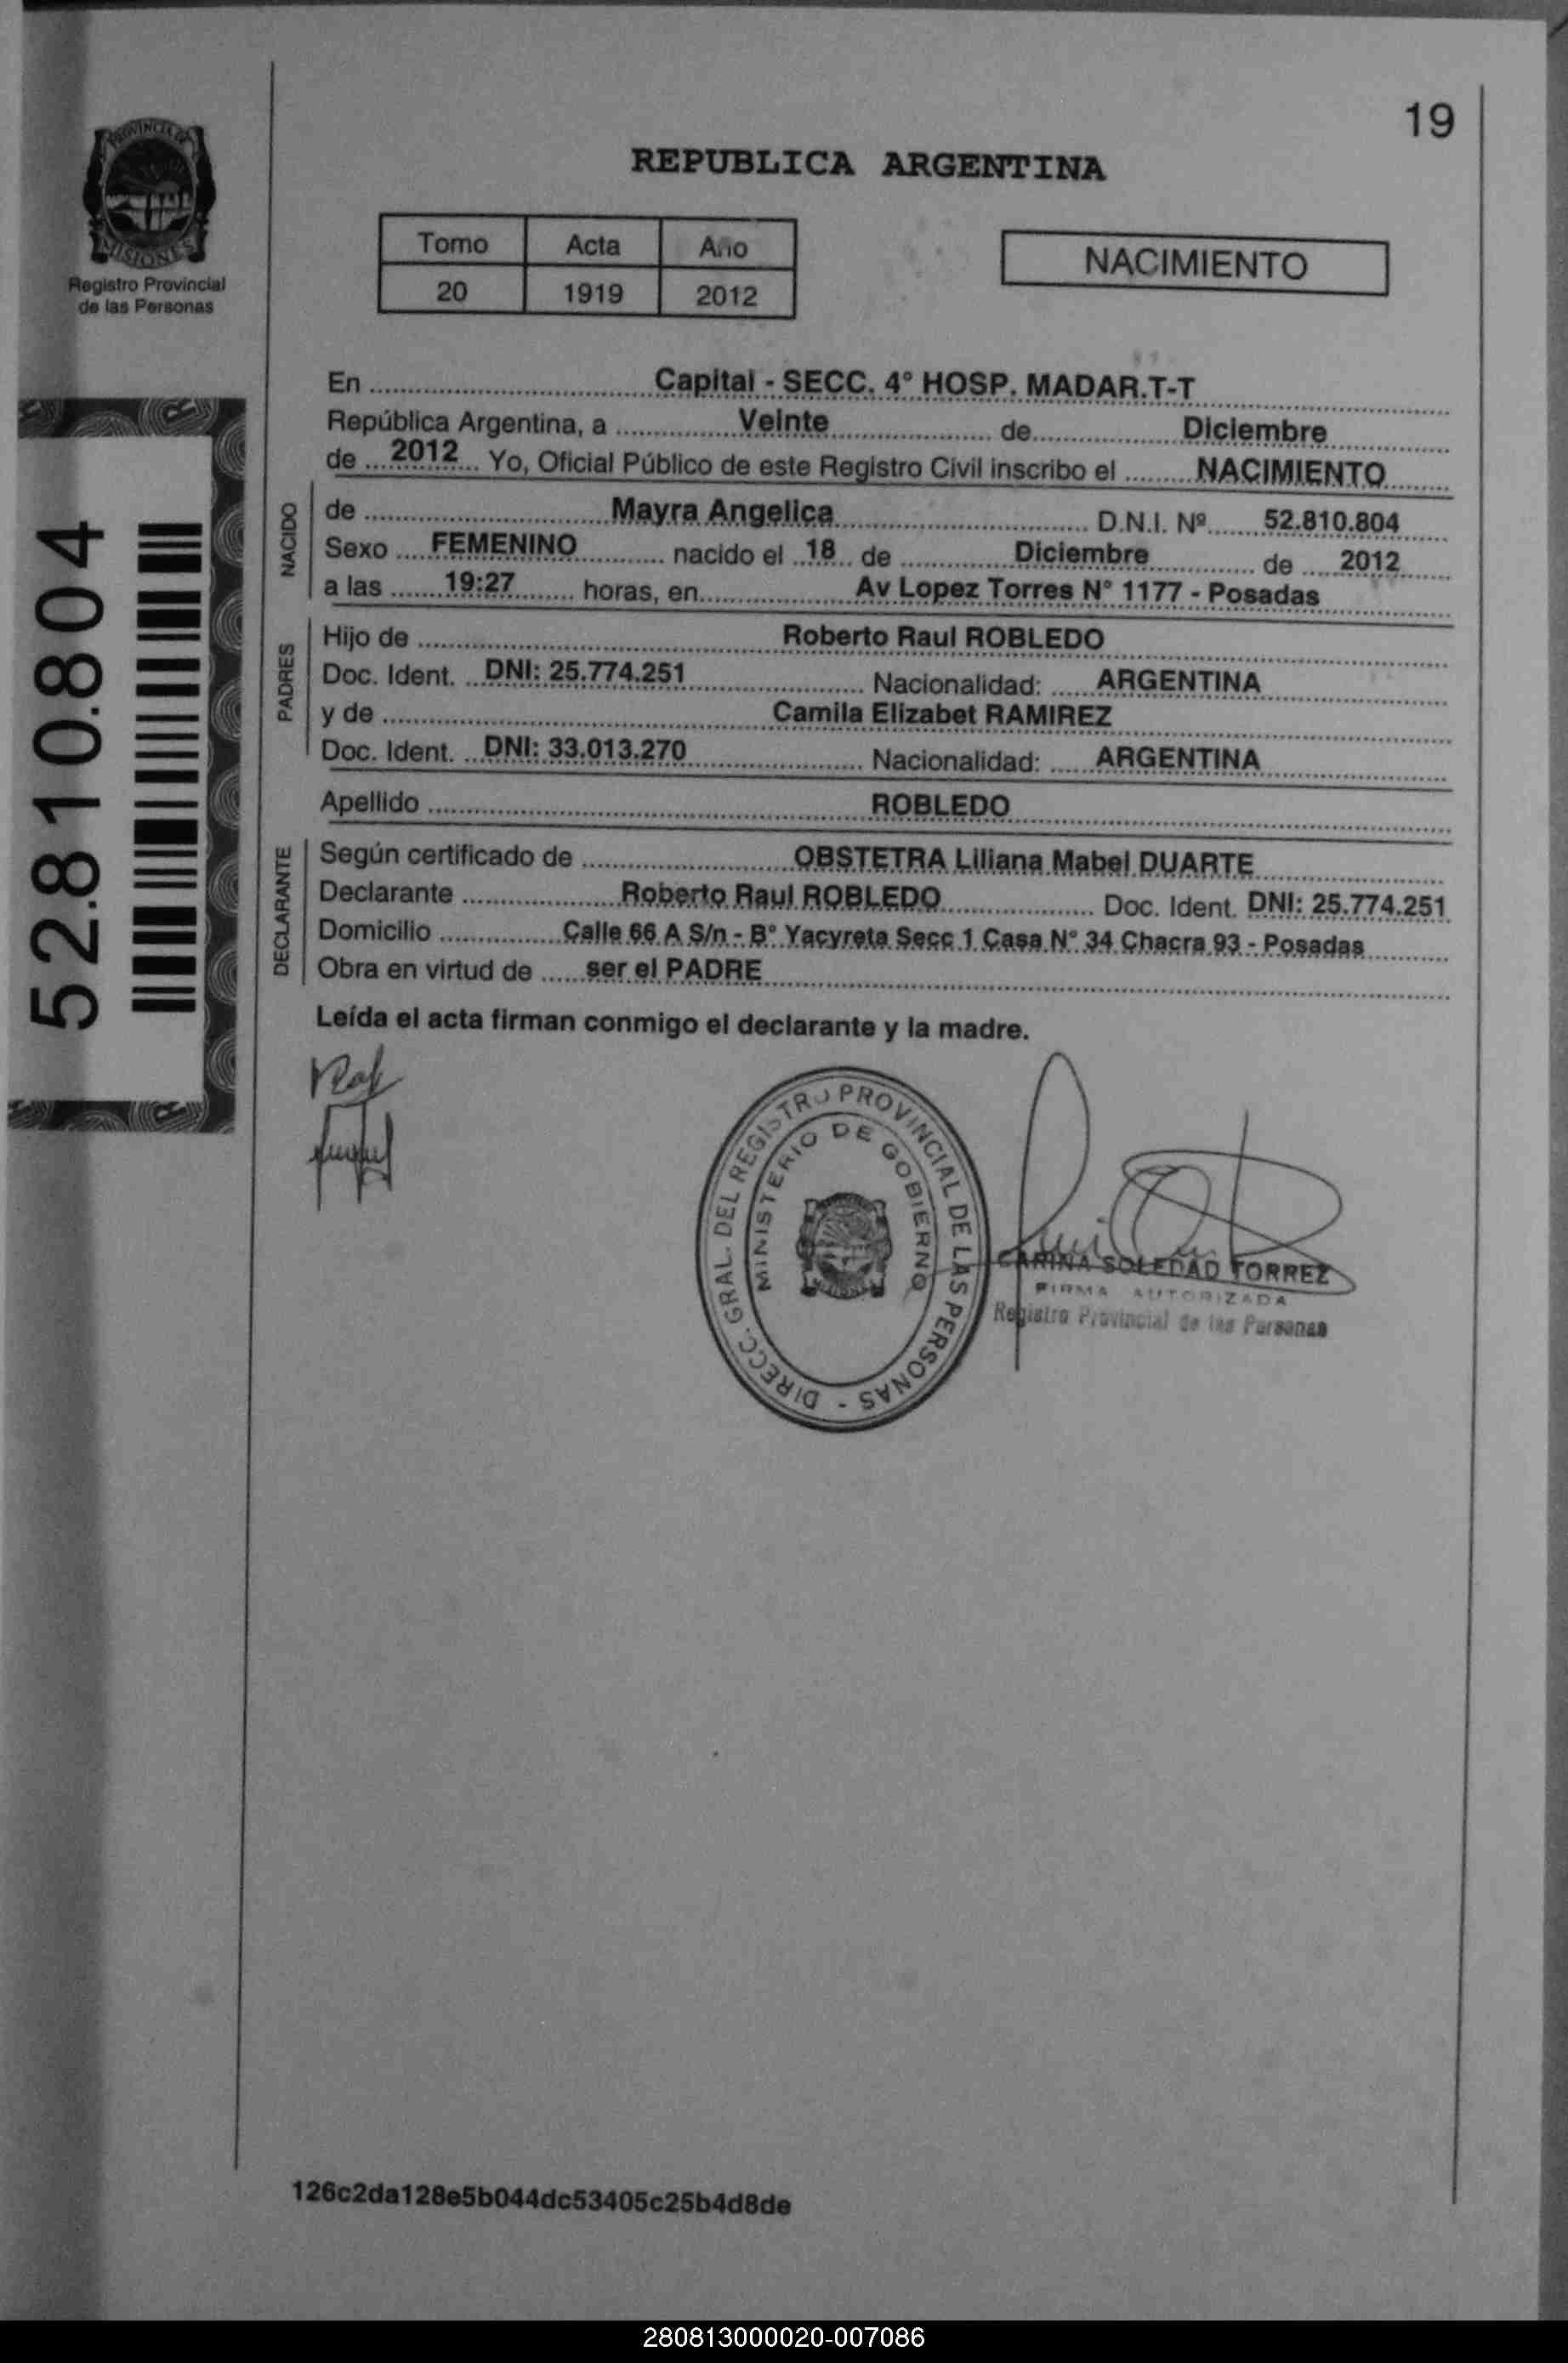 19
PROVINCIA DE
MISIONES
Registro Provincial
de las Personas
REPUBLICA ARGENTINA
Tomo Acta Año
20 1919 2012
NACIMIENTO
52.810.804
En Capital - SECC. 4° HOSP. MADAR.T-T
República Argentina, a Veinte de Diciembre
de 2012 Yo, Oficial Público de este Registro Civil inscribo el NACIMIENTO
NACIDO
de Mayra Angelica D.N.I. Nº 52.810.804
Sexo FEMENINO nacido el 18 de Diciembre de 2012
a las 19:27 horas, en Av Lopez Torres N° 1177 - Posadas
PADRES
Hijo de Roberto Raul ROBLEDO
Doc. Ident. DNI: 25.774.251 Nacionalidad: ARGENTINA
y de Camila Elizabet RAMIREZ
Doc. Ident. DNI: 33.013.270 Nacionalidad: ARGENTINA
Apellido ROBLEDO
DECLARANTE
Según certificado de OBSTETRA Liliana Mabel DUARTE
Declarante Roberto Raul ROBLEDO Doc. Ident. DNI: 25.774.251
Domicilio Calle 66 A S/n - B° Yacyreta Secc 1 Casa N° 34 Chacra 93 - Posadas
Obra en virtud de ser el PADRE
Leída el acta firman conmigo el declarante y la madre.
DIRECC. GRAL. DEL REGISTRO PROVINCIAL DE LAS PERSONAS -
MINISTERIO DE GOBIERNO
CARINA SOLEDAD TORREZ
FIRMA AUTORIZADA
Registro Provincial de las Personas
126c2da128e5b044dc53405c25b4d8de
280813000020-007086